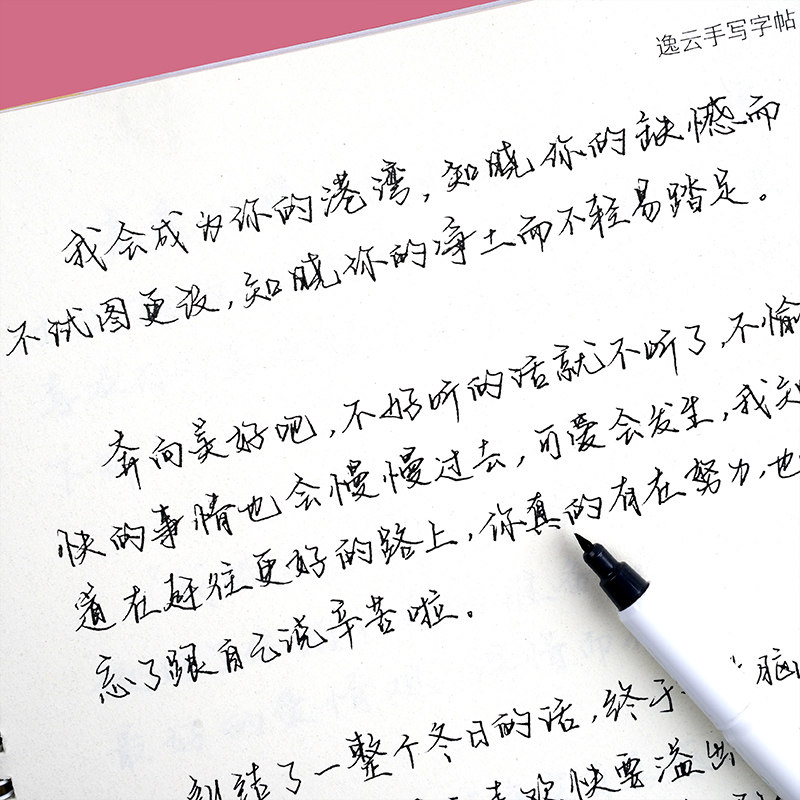 逸云手写字帖
我会成为你的港湾，知晓你的缺憾而
不试图更改，知晓你的净土而不轻易踏足。
奔向美好吧，不好听的话就不听了，不愉
快的事情也会慢慢过去，可爱会发生，我知
道在赶往更好的路上，你真的有在努力，也
忘了跟自己说辛苦啦。
结了一整个冬日的话，终于 脑
喜欢快要溢出